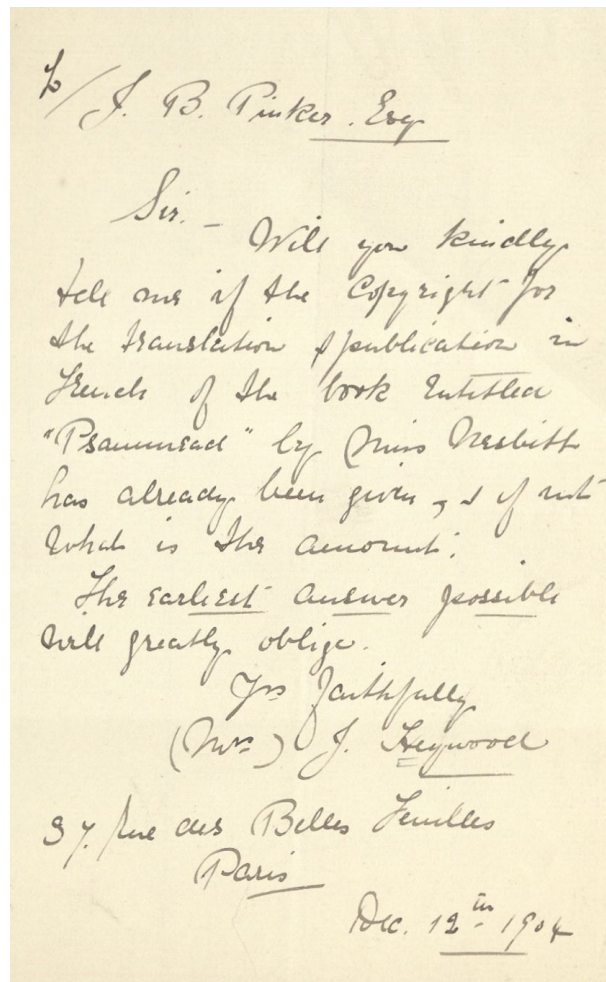 To/J. B. Pinker. Esq
Sir. – Will you kindly
tell me if the Copyright for
the translation & publication in
French of the book Entitled
"Psammead" by Miss Nesbitt
has already been given, & if not
What is the amount.
The earliest answer possible
will greatly oblige.
Yrs faithfully
(Mrs) J. Heywood
37. Rue des Belles Feuilles
Paris
Dec. 12th 1904